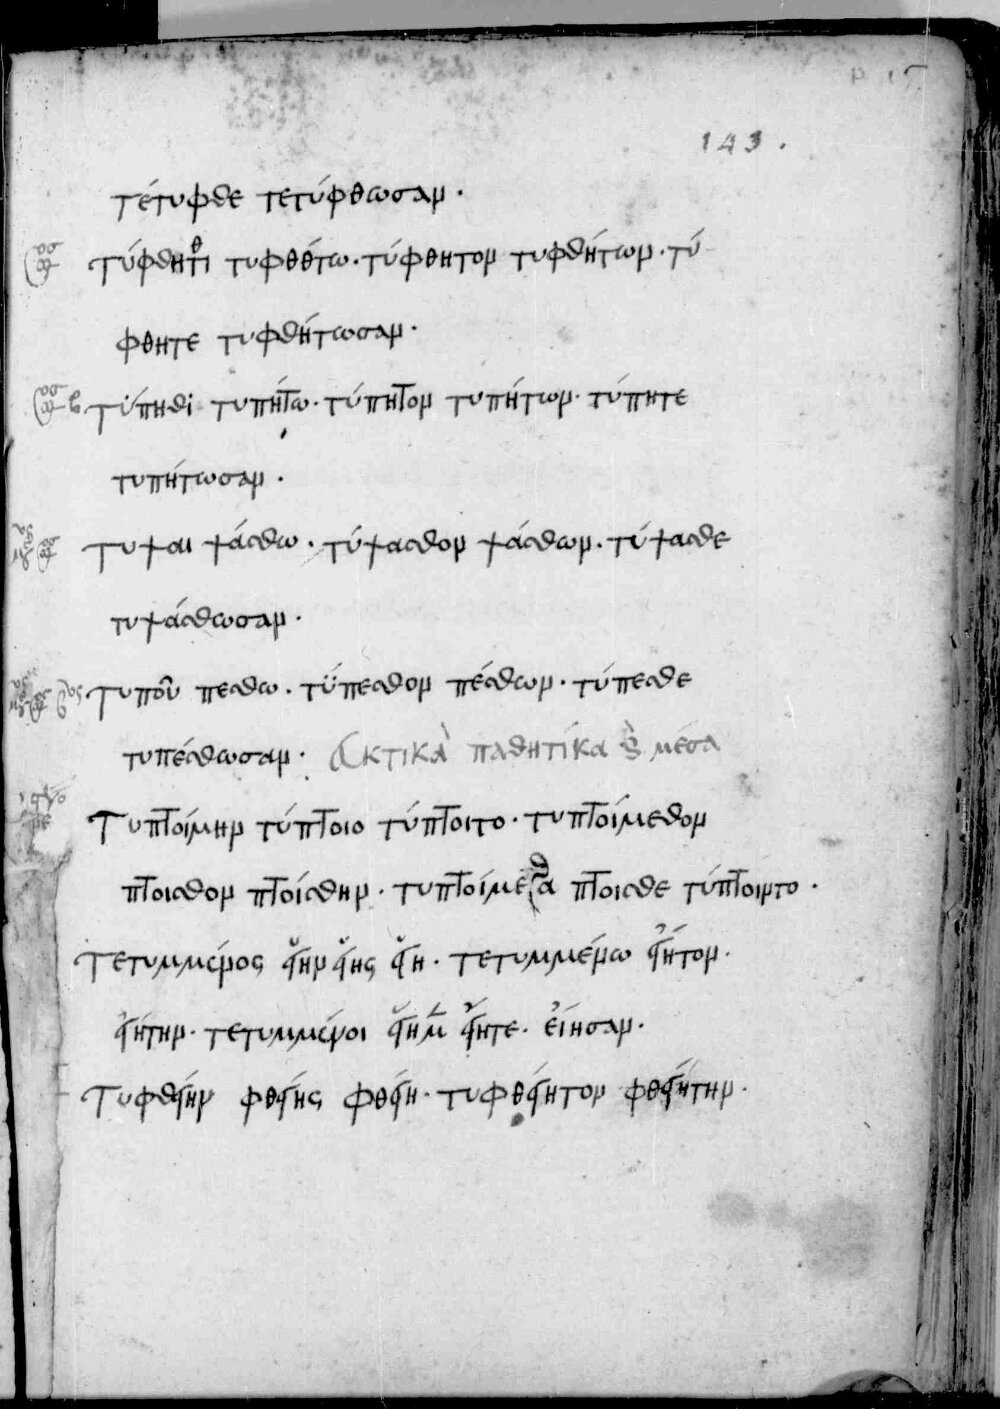 143.
τέτυφθε τετύφθωσαν.
τύφθητι τυφθήτω. τύφθητον τυφθήτων. τύ
φθητε τυφθήτωσαν.
τύπηθι τυπήτω. τύπητον τυπήτων. τύπητε
τυπήτωσαν.
τυψαι ψάσθω. τύψασθον ψάσθων. τύψασθε
τυψάσθωσαν.
τυποῦ πεσθω. τύπεσθον πέσθων. τύπεσθε
τυπέσθωσαν. ἑκτικὰ παθητικα καὶ μέσα
Τυπτοίμην τύπτοιο τύπτοιτο. τυπτοίμεθον
πτοισθον πτοίσθην. τυπτοίμεθα πτοισθε τύπτοιντο.
τετυμμένος εἴην εἴης εἴη. τετυμμένω εἴητον.
εἰήτην. τετυμμένοι εἴημεν εἴητε. εἴησαν.
Τυφθείην φθείης φθείη. τυφθείητον φθειήτην.